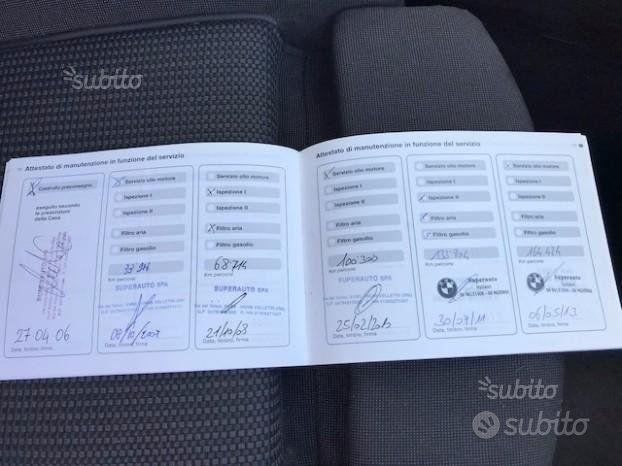 subito
Attestato di manutenzione in funzione del servizio
Controllo preconsegna
eseguito secondo
le prescrizioni
della Casa
27.04.06
Data, timbro, firma
Servizio olio motore
Ispezione I
Ispezione II
Filtro aria
Filtro gasolio
Km percorsi
SUPERAUTO SPA
Data, timbro, firma
Servizio olio motore
Ispezione I
Ispezione II
Filtro aria
Filtro gasolio
68714
Km percorsi
SUPERAUTO SPA
Data, timbro, firma
Attestato di manutenzione in funzione del servizio
Servizio olio motore
Ispezione I
Ispezione II
Filtro aria
Filtro gasolio
100300
Km percorsi
SUPERAUTO SPA
25/02/2010
Data, timbro, firma
Servizio olio motore
Ispezione I
Ispezione II
Filtro aria
Filtro gasolio
Km percorsi
Superauto
30/07/11
Data, timbro, firma
Servizio olio motore
Ispezione I
Ispezione II
Filtro aria
Filtro gasolio
Km percorsi
Superauto
06/05/13
Data, timbro, firma
subito
subito